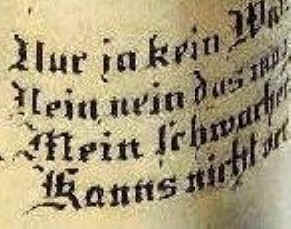 Nur ja kein
Nein nein das
Mein schwacher
Kanns nicht